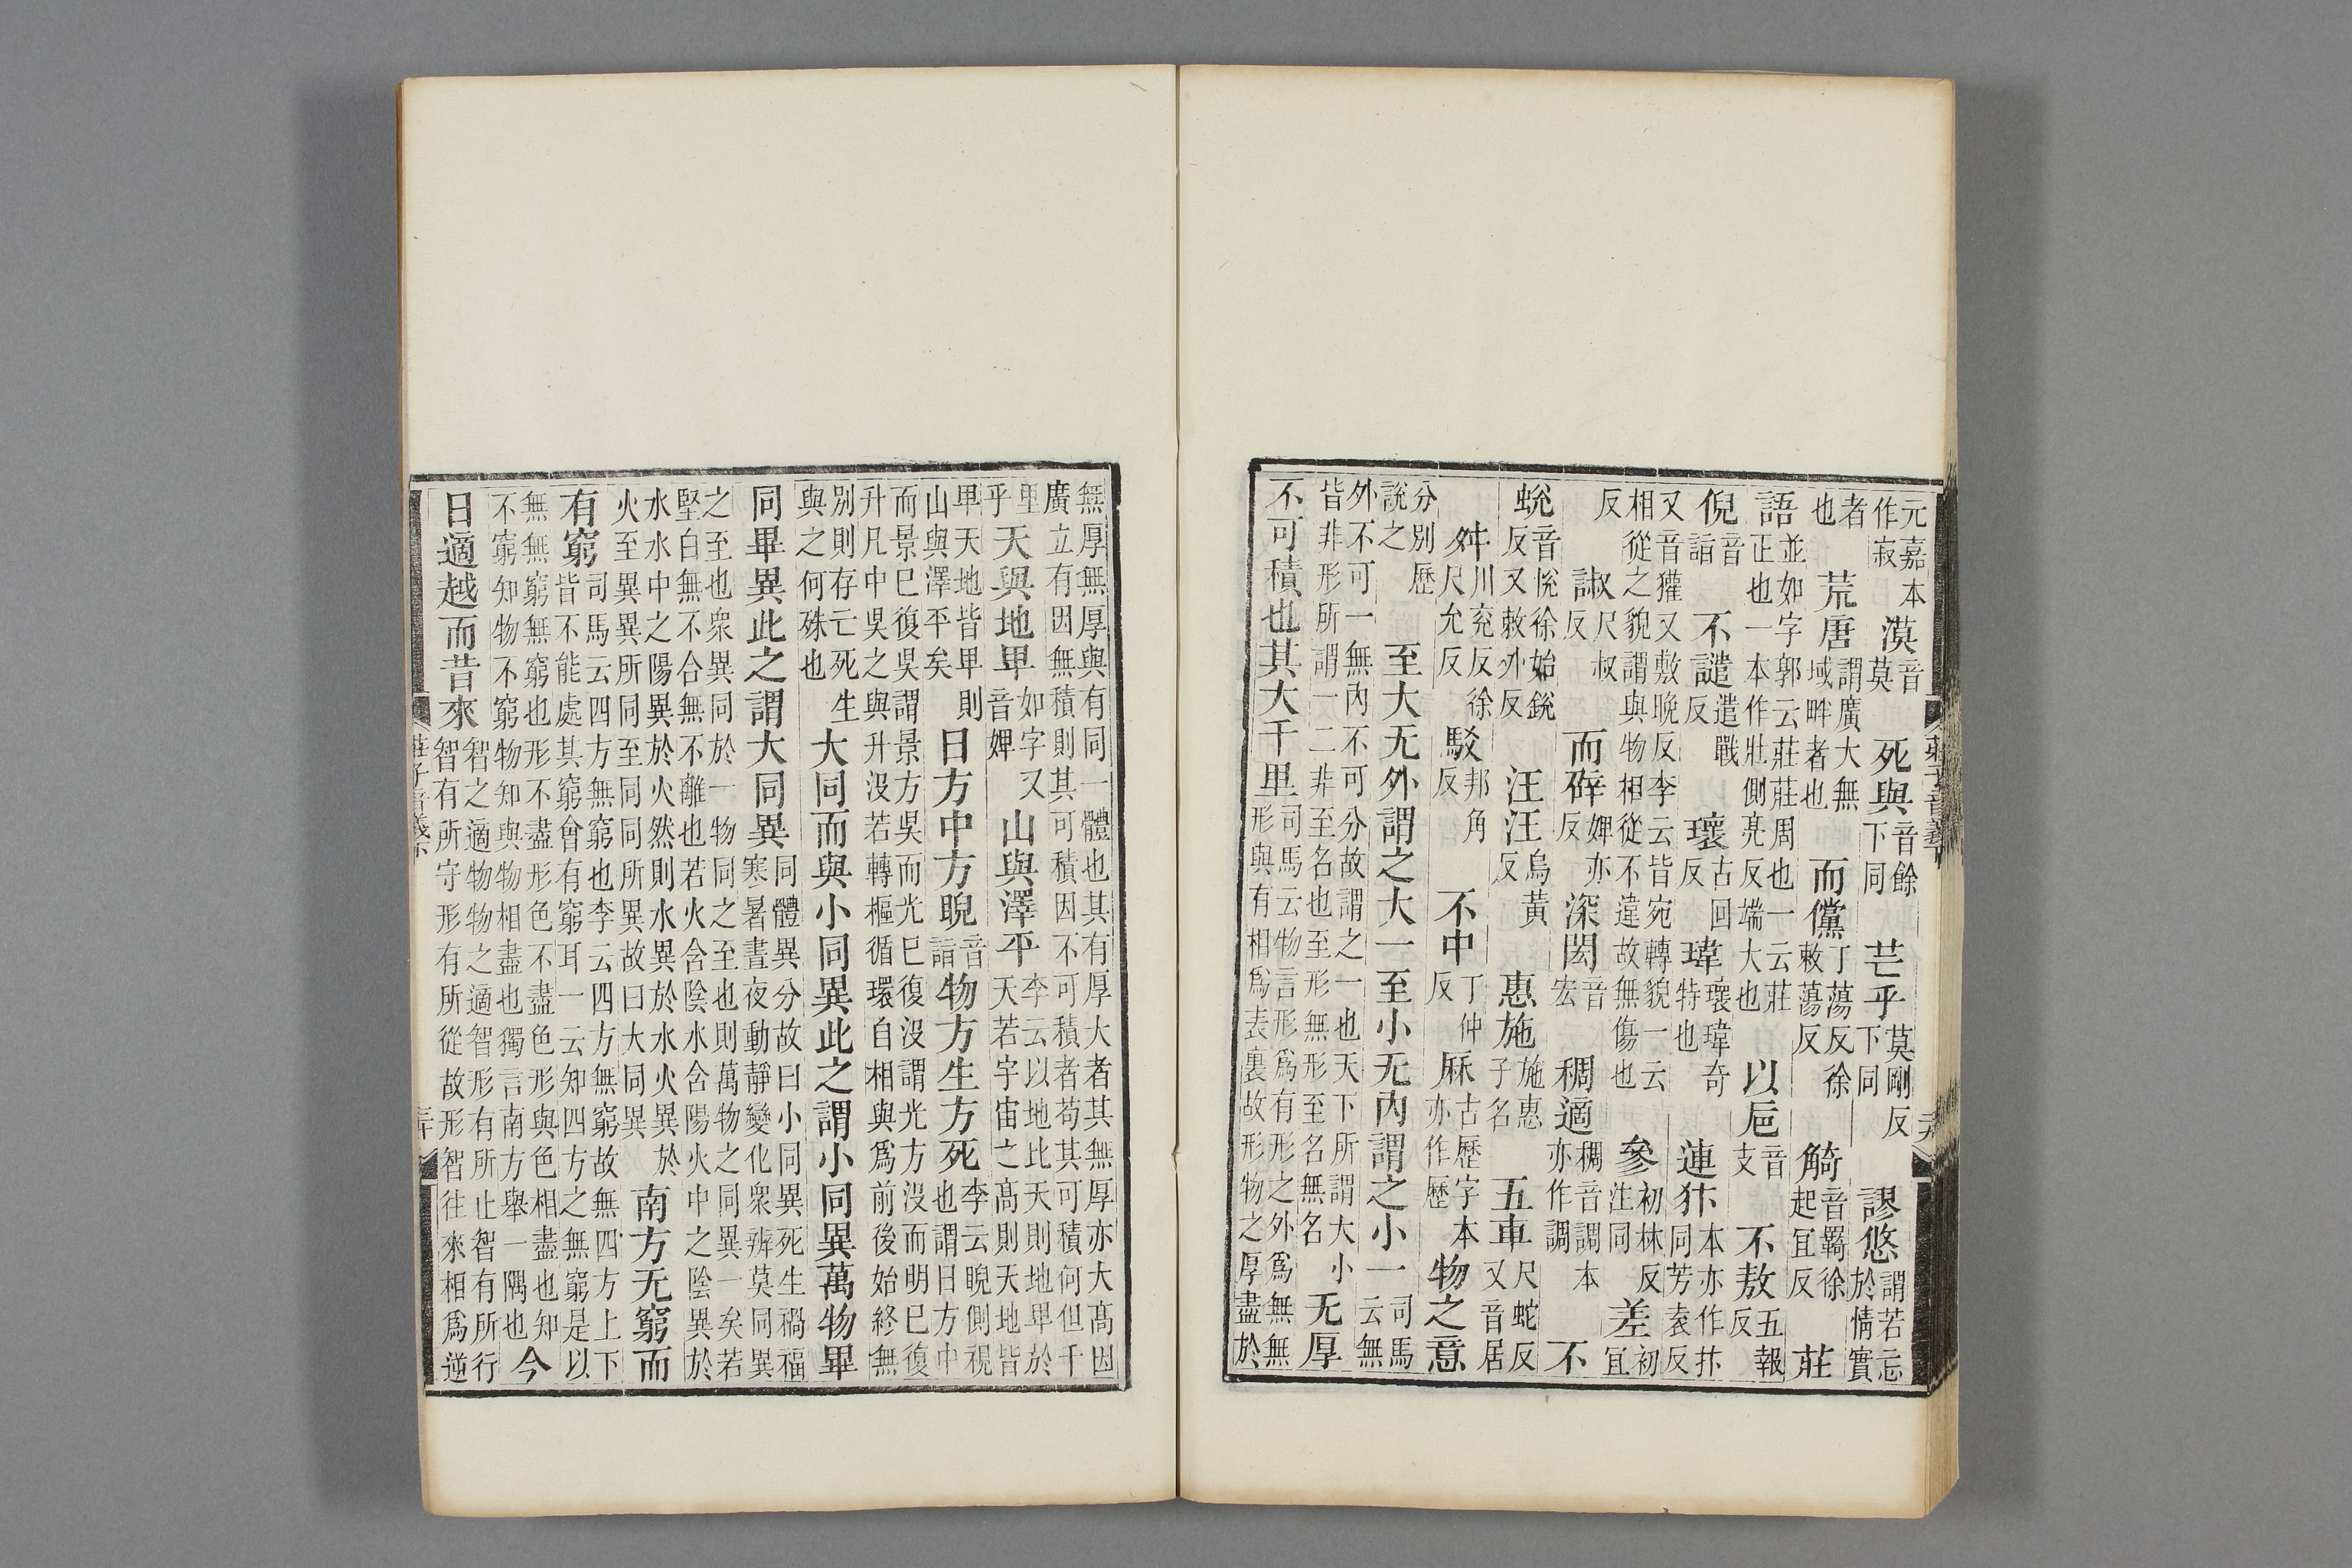 莊子音義下
元嘉本作寂漠音莫死與音餘下同芒乎莫剛反下同謬悠謂若忘於情實
者也荒唐謂廣大無域畔者也而儻丁蕩反徐敕蕩反觭音羈徐起宜反莊
語並如字郭云莊莊周也一云莊正也一本作壯側亮反端大也以巵音支不敖五報反
倪音詣不譴遣戰反瓌古回反瑋瓌瑋奇特也連犿本亦作抃同芳袁反
又音獾又敷晚反李云皆宛轉貌一云相從之貌謂與物相從不違故無傷也參初林反注同差初宜
反諔尺叔反而辟婢亦反深閎音宏稠適稠音調本亦作調不
蛻音悅徐始銳反又敕外反汪汪烏黃反惠施施惠子名五車尺蛇反又音居
舛川兖反徐尺允反駁邦角反不中丁仲反厤古歷字本亦作歷物之意
分別歷說之至大无外謂之大一至小无內謂之小一司馬云無
外不可一無內不可分故謂之一也天下所謂大小皆非形所謂一二非至名也至形無形至名無名无厚
不可積也其大千里司馬云物言形爲有形之外爲無無形與有相爲表裏故形物之厚盡於
無厚無厚與有同一體也其有厚大者其無厚亦大高因廣立有因無積則其可積因不可積者苟其可積何但千
里乎天與地卑如字又音婢山與澤平李云以地比天則地卑於天若宇宙之高則天地皆
卑天地皆卑則山與澤平矣日方中方睨音詣物方生方死李云睨側視也謂日方中
而景已復昃謂景方昃而光已復沒謂光方沒而明已復升凡中昃之與升沒若轉樞循環自相與爲前後始終無
別則存亡死生與之何殊也大同而與小同異此之謂小同異萬物畢
同畢異此之謂大同異同體異分故曰小同異死生禍福寒暑晝夜動靜變化衆辨莫同異
之至也衆異同於一物同之至也則萬物之同異一矣若堅白無不合無不離也若火含陰水含陽火中之陰異於
水水中之陽異於火然則水異於水火異於火至異異所同至同同所異故曰大同異南方无窮而
有窮司馬云四方無窮也李云四方無窮故無四方上下皆不能處其窮會有窮耳一云知四方之無窮是以
無無窮無窮也形不盡形色不盡色形與色相盡也知不窮知物不窮物知與物相盡也獨言南方舉一隅也今
日適越而昔來智之適物物之適智形有所止智有所行智有所守形有所從故形智往來相爲逆
莊子音義下